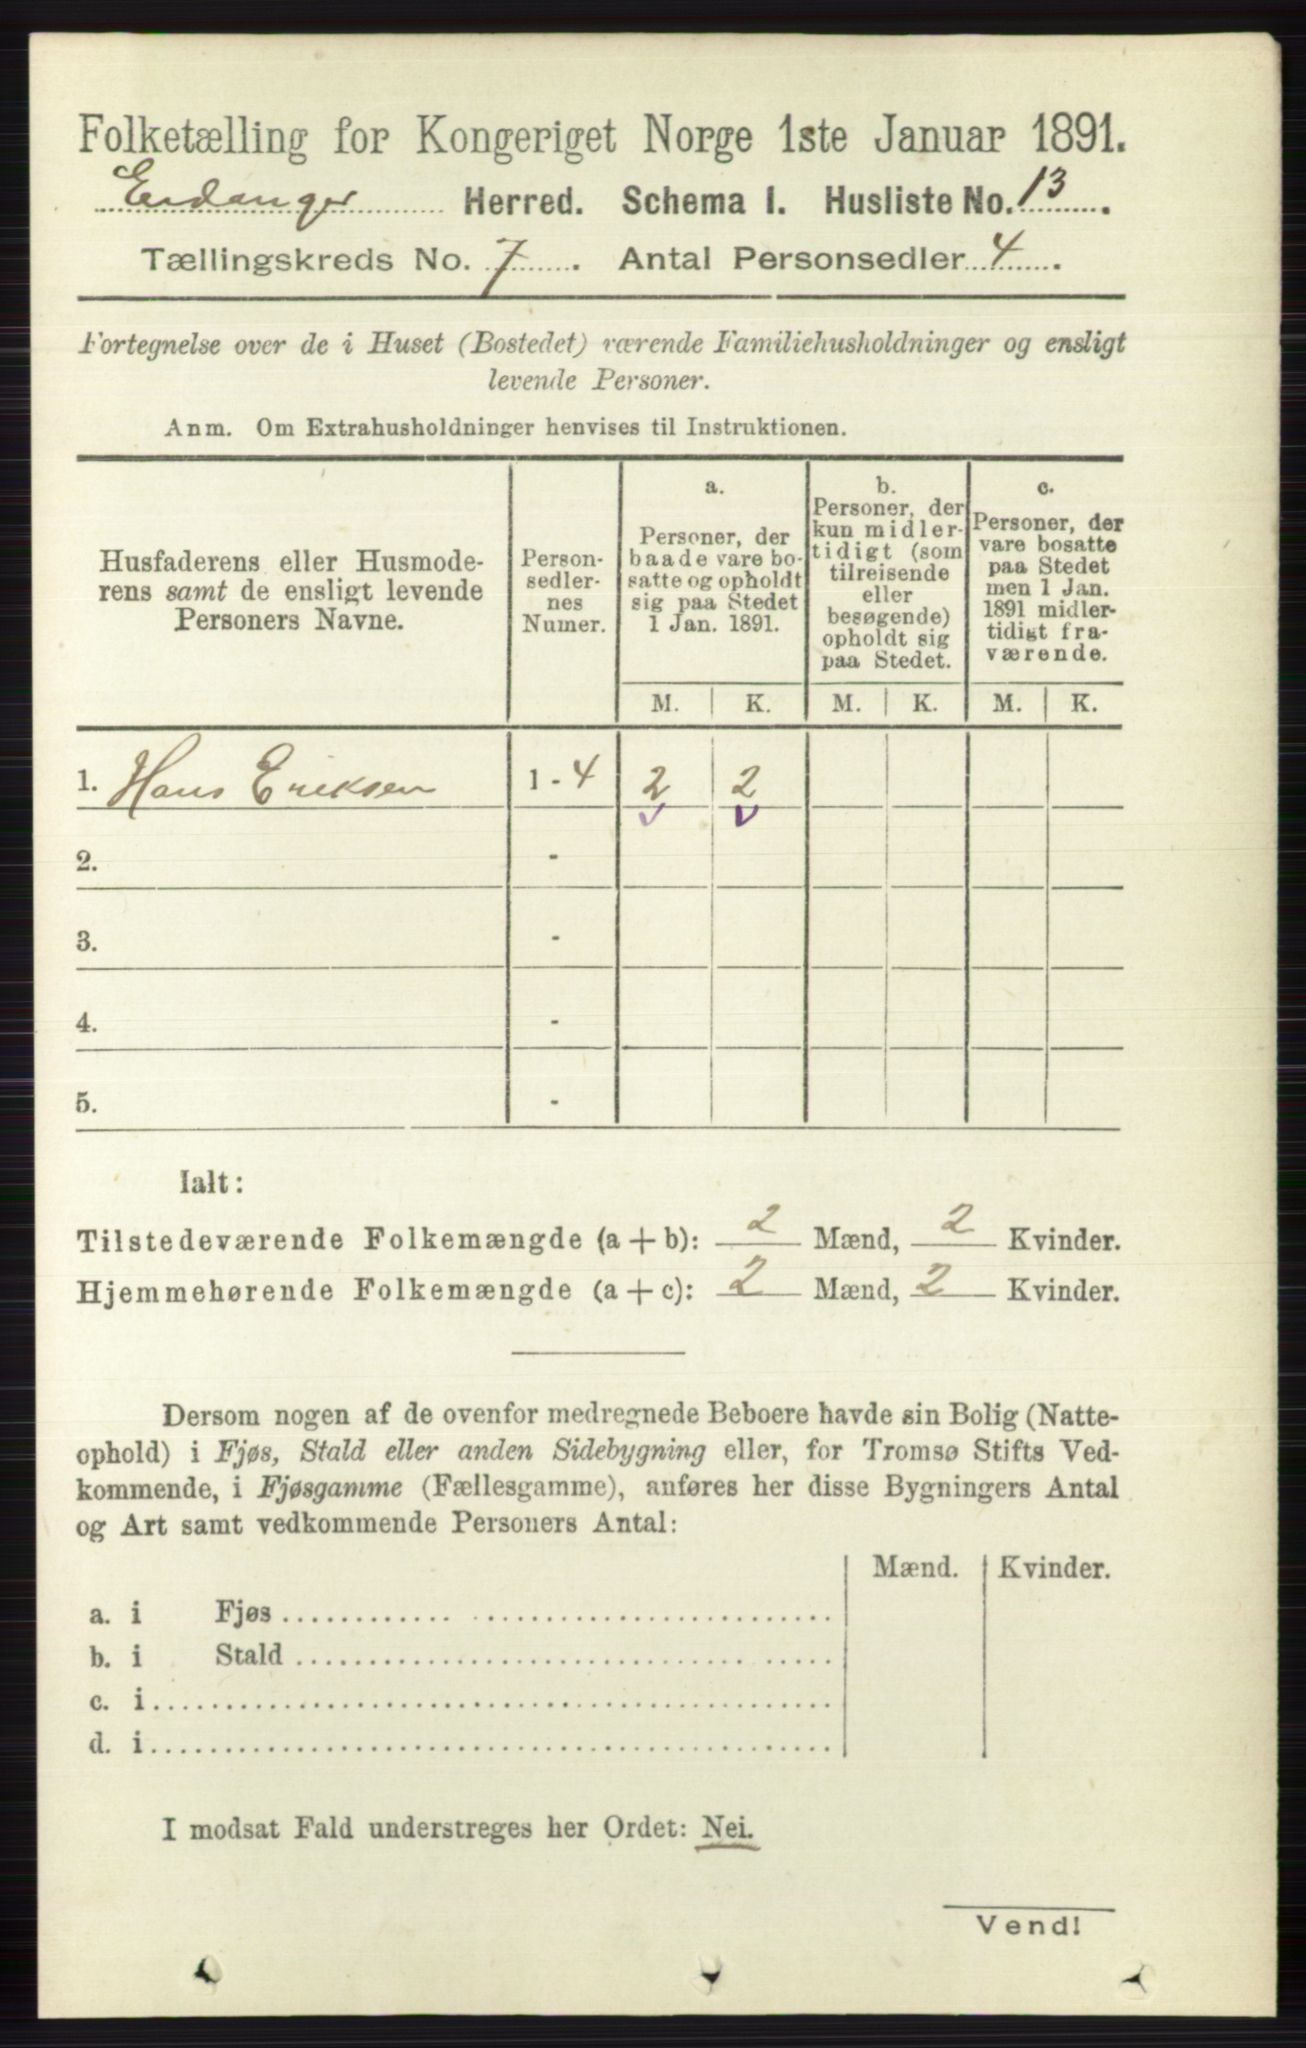 Folketælling for Kongeriget Norge 1ste Januar 1891.
Eidanger Herred. Schema I. Husliste No. 13.
Tællingskreds No. 7. Antal Personsedler 4.
Fortegnelse over de i Huset (Bostedet) værende Familiehusholdninger og ensligt
levende Personer.
Anm. Om Extrahusholdninger henvises til Instruktionen.
Husfaderens eller Husmode-
rens samt de ensligt levende
Personers Navne.
Person-
sedler-
nes
Numer.
a.
Personer, der
baade vare bo-
satte og opholdt
sig paa Stedet
1 Jan. 1891.
b.
Personer, der
kun midler-
tidigt (som
tilreisende
eller
besøgende)
opholdt sig
paa Stedet.
c.
Personer, der
vare bosatte
paa Stedet
men 1 Jan.
1891 midler-
tidigt fra-
værende.
M. K. M. K. M. K.
1. Hans Eriksen 1 - 4 2 2
2. -
3. -
4. -
5. -
Ialt:
Tilstedeværende Folkemængde (a + b): 2 Mænd, 2 Kvinder.
Hjemmehørende Folkemængde (a + c): 2 Mænd, 2 Kvinder.
Dersom nogen af de ovenfor medregnede Beboere havde sin Bolig (Natte-
ophold) i Fjøs, Stald eller anden Sidebygning eller, for Tromsø Stifts Ved-
kommende, i Fjøsgamme (Fællesgamme), anføres her disse Bygningers Antal
og Art samt vedkommende Personers Antal:
Mænd. Kvinder.
a. i Fjøs
b. i Stald
c. i
d. i
I modsat Fald understreges her Ordet: Nei.
Vend!